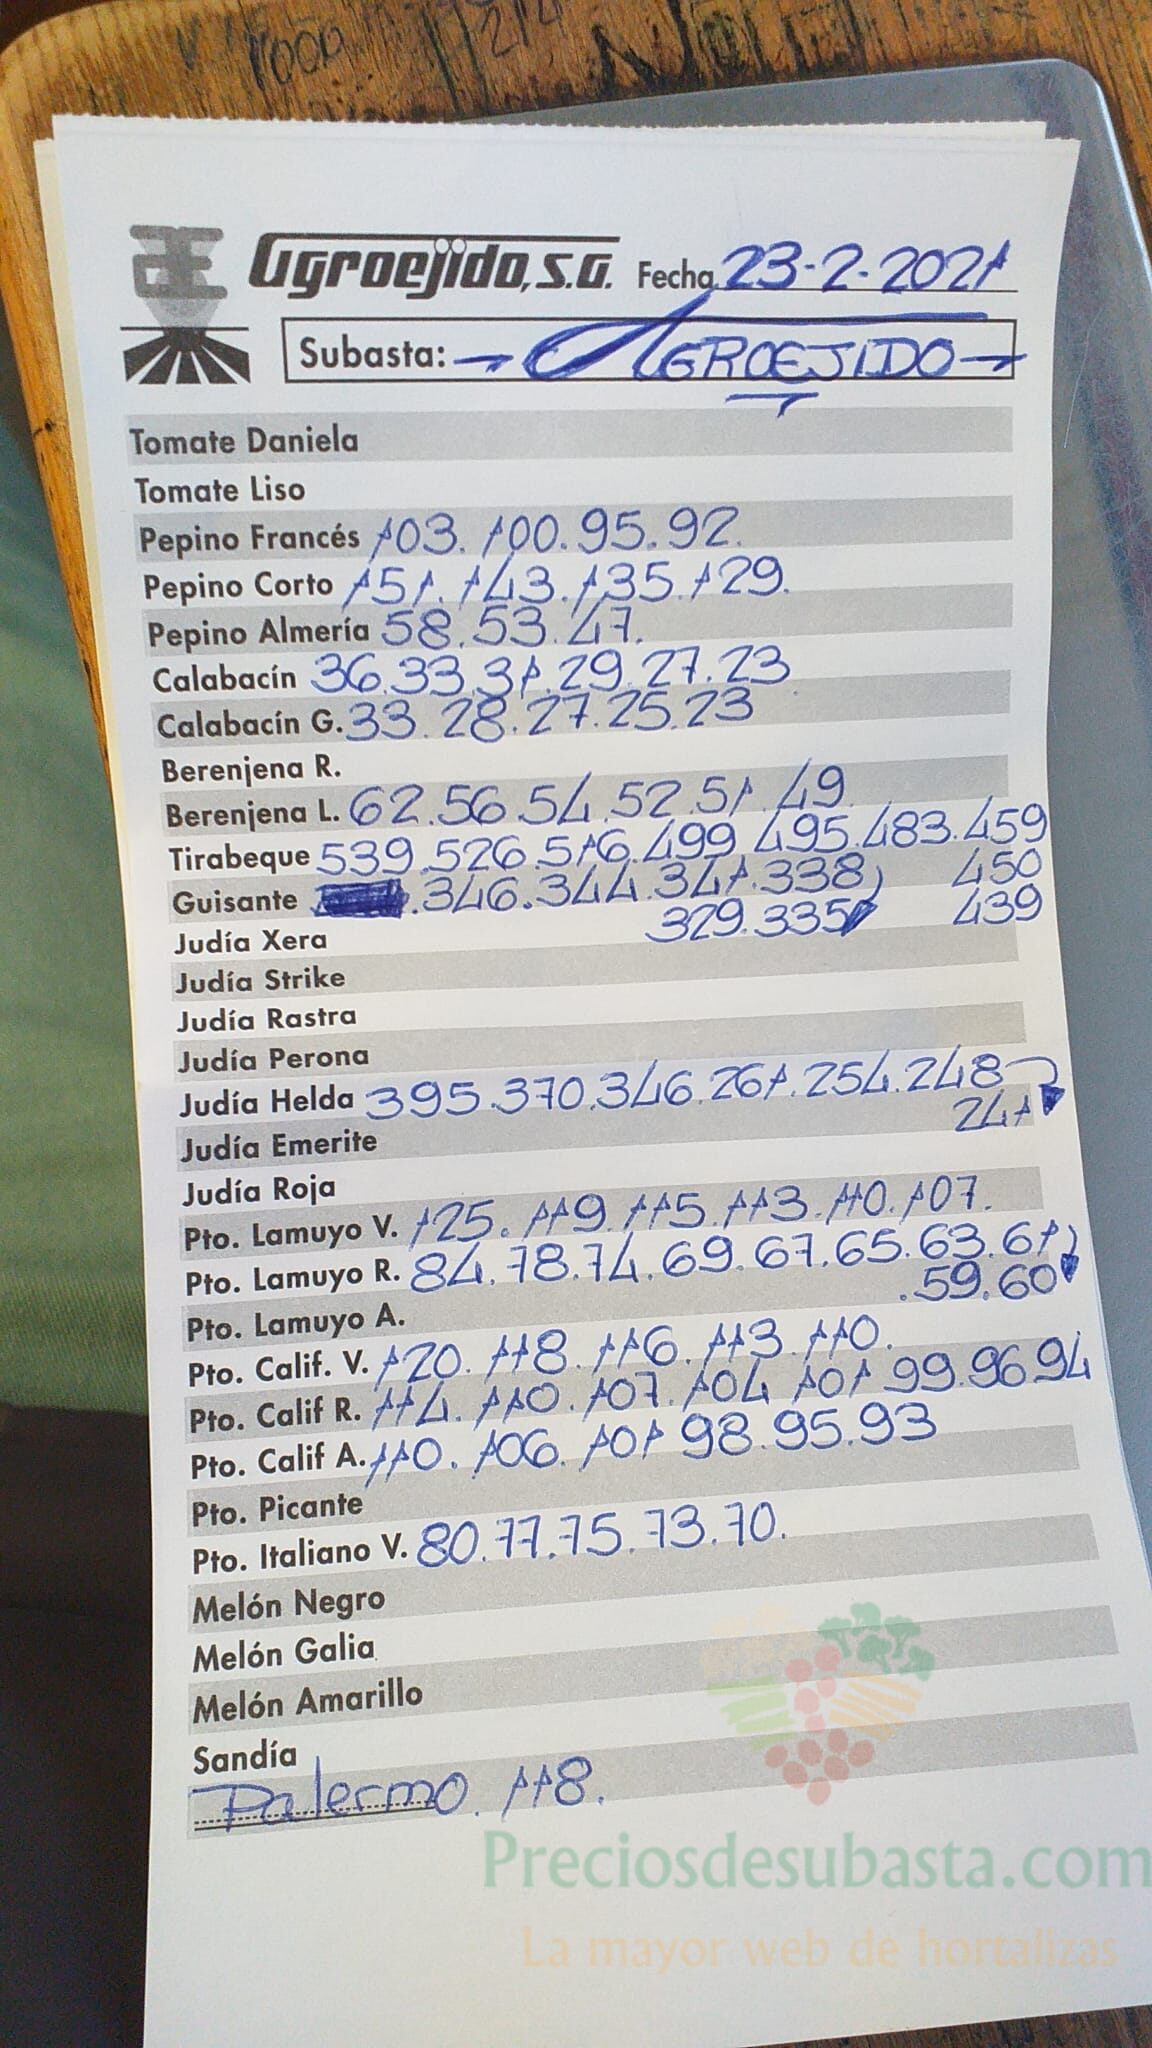 1000
Agroejido, S.A. Fecha 23-2-2021
Subasta: AGROEJIDO
Tomate Daniela
Tomate Liso
Pepino Francés 103. 100. 95. 92.
Pepino Corto 151. 143. 135. 129.
Pepino Almería 58. 53. 47.
Calabacín 36. 33. 31. 29. 27. 23
Calabacín G. 33. 28. 27. 25. 23
Berenjena R.
Berenjena L. 62. 56. 54. 52. 51. 49
Tirabeque 539. 526. 516. 499 495. 483. 459
450
Guisante .346. 344. 341. 338
439
329. 335
Judía Xera
Judía Strike
Judía Rastra
Judía Perona
Judía Helda 395. 370. 346. 261. 254. 248
241
Judía Emerite
Judía Roja
Pto. Lamuyo V. 125. 119. 115. 113. 110. 107.
Pto. Lamuyo R. 84. 78. 74. 69. 67. 65. 63. 61
.59. 60
Pto. Lamuyo A.
Pto. Calif. V. 120. 118. 116. 113. 110.
Pto. Calif R. 114. 110. 107. 104 101 99. 96 94
Pto. Calif A. 110. 106. 101 98. 95. 93
Pto. Picante
Pto. Italiano V. 80. 77. 75. 73. 70.
Melón Negro
Melón Galia
Melón Amarillo
Sandía
Palermo. 118.
Preciosdesubasta.com
La mayor web de hortalizas